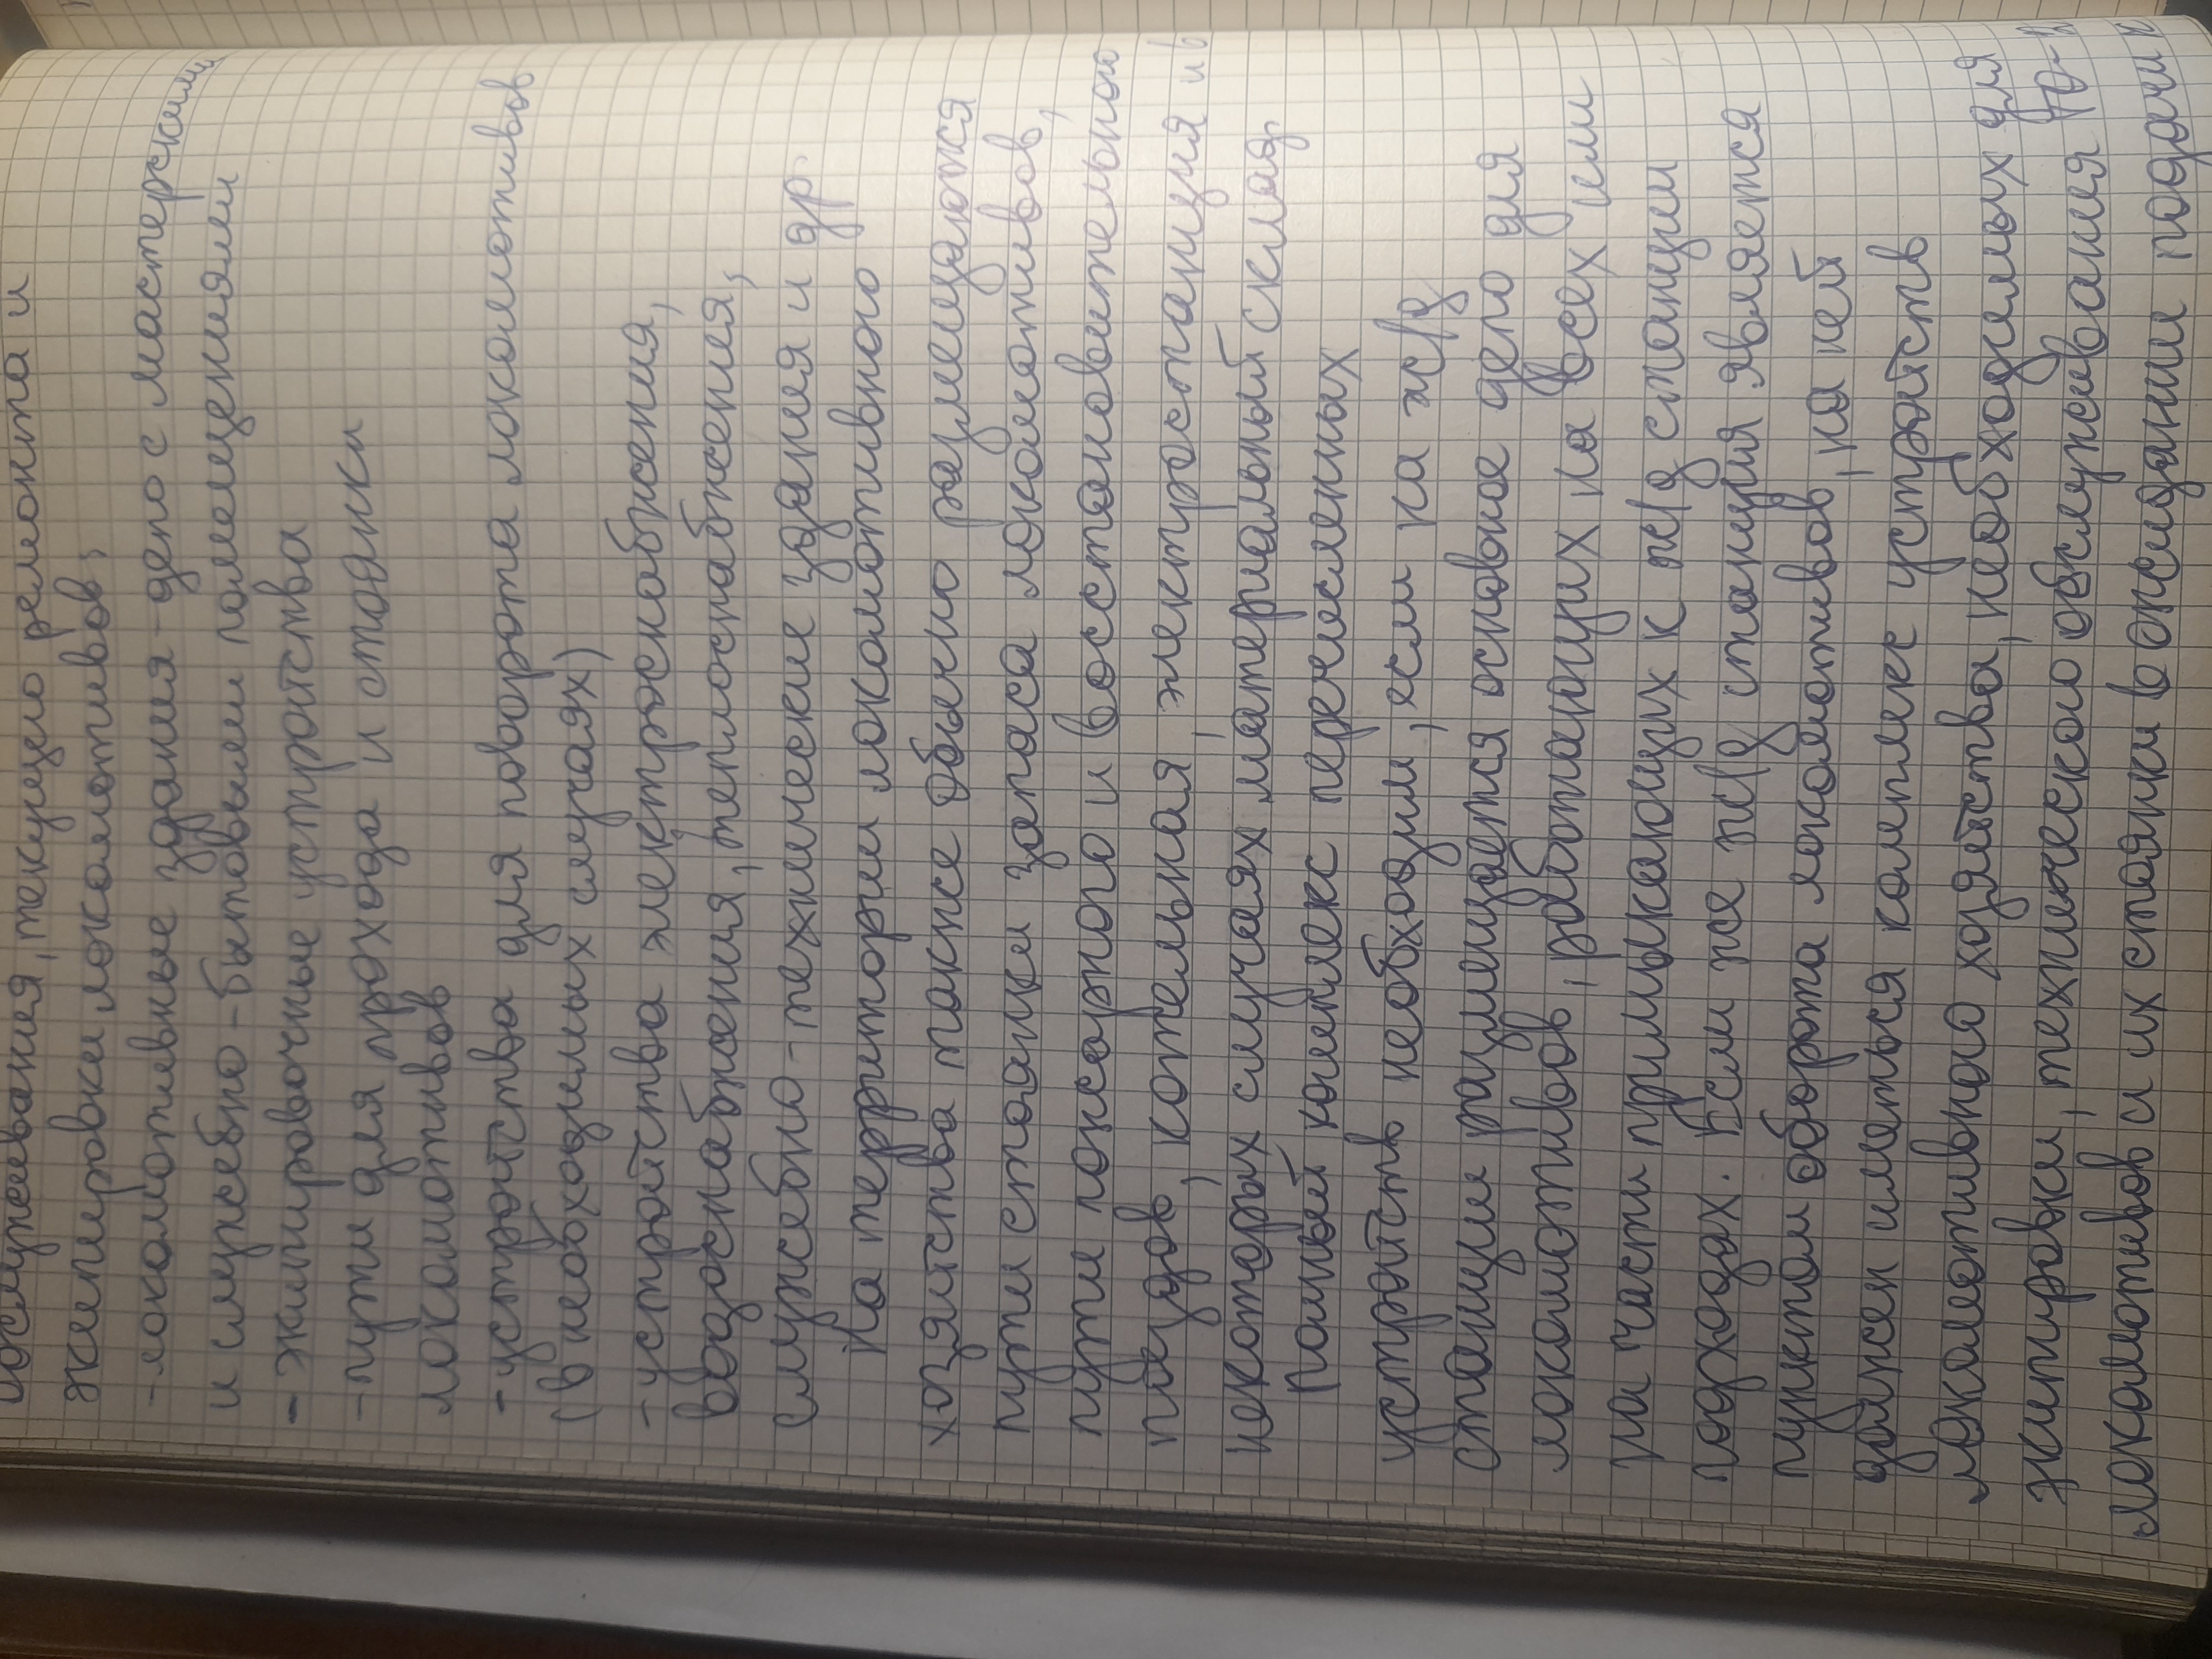 обслуживания, текущего ремонта и
экипировки локомотивов;
- локомотивные здания - депо с мастерскими
и служебно - бытовыми помещениями
- экипировочные устройства
- пути для прохода и стоянки
локомотивов
- устройства для поворота локомотивов
(в необходимых случаях)
- устройства электроснабжения,
водоснабжения, теплоснабжения,
служебно - технические здания и др.
На территории локомотивного
хозяйства также обычно размещаются
пути стоянки запаса локомотивов,
пути пожарного и восстановительного
поездов, котельная, электростанция и в
некоторых случаях материальный склад.
Полный комплекс перечисленных
устройств необходим, если на ж/д
станции размещается основное депо для
локомотивов, работающих на всех или
на части примыкающих к ж/д станции
подходах. Если же ж/д станция является
пунктом оборота локомотивов, на ней
должен иметься комплекс устройств
локомотивного хозяйства, необходимых для
экипировки, технического обслуживания ТО-2
локомотивов и их стоянки в ожидании подачи к